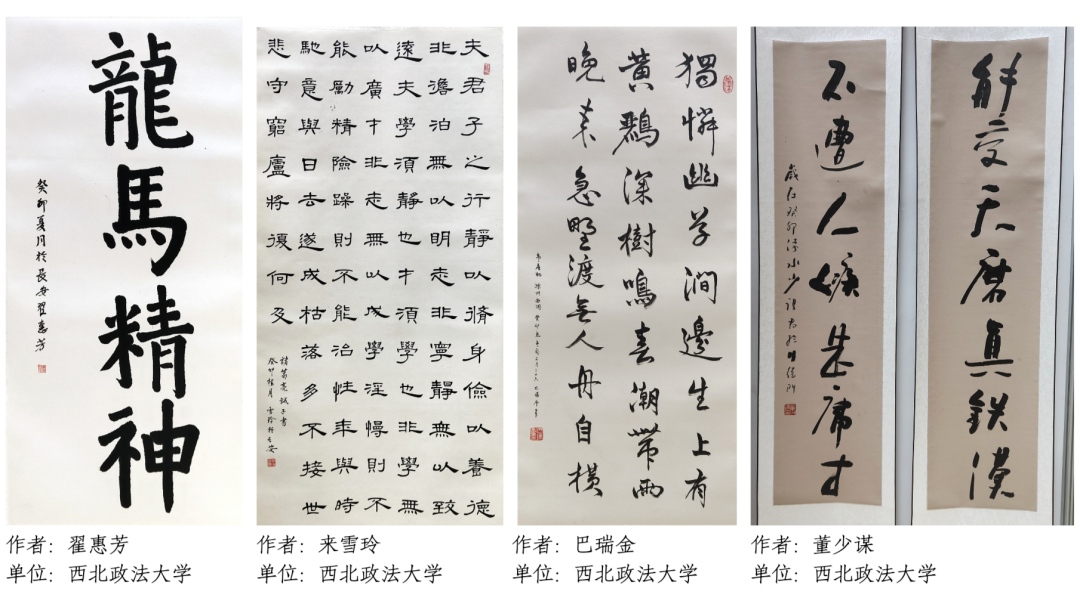 龍馬精神
癸卯夏月於長安翟惠芳
夫君子之行靜以脩身儉以養德
非澹泊無以明志非寧靜無以致
遠夫學須靜也才須學也非學無
以廣才非志無以成學淫慢則不
能勵精險躁則不能治性年與時
馳意與日去遂成枯落多不接世
悲守窮廬將復何及
諸葛亮誡子書
癸卯桂月 雪玲於長安
獨憐幽草澗邊生上有
黄鸝深樹鳴春潮帶雨
晚來急野渡無人舟自橫
能受天磨真鐵漢
不遭人嫉是庸才
歲在癸卯
作者：翟惠芳
单位：西北政法大学
作者：来雪玲
单位：西北政法大学
作者：巴瑞金
单位：西北政法大学
作者：董少谋
单位：西北政法大学